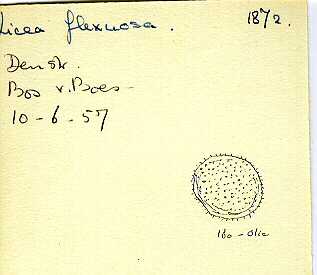 Licea flexuosa. 1872.
Den str.
Bos v. Boes
10-6-57
160-olie